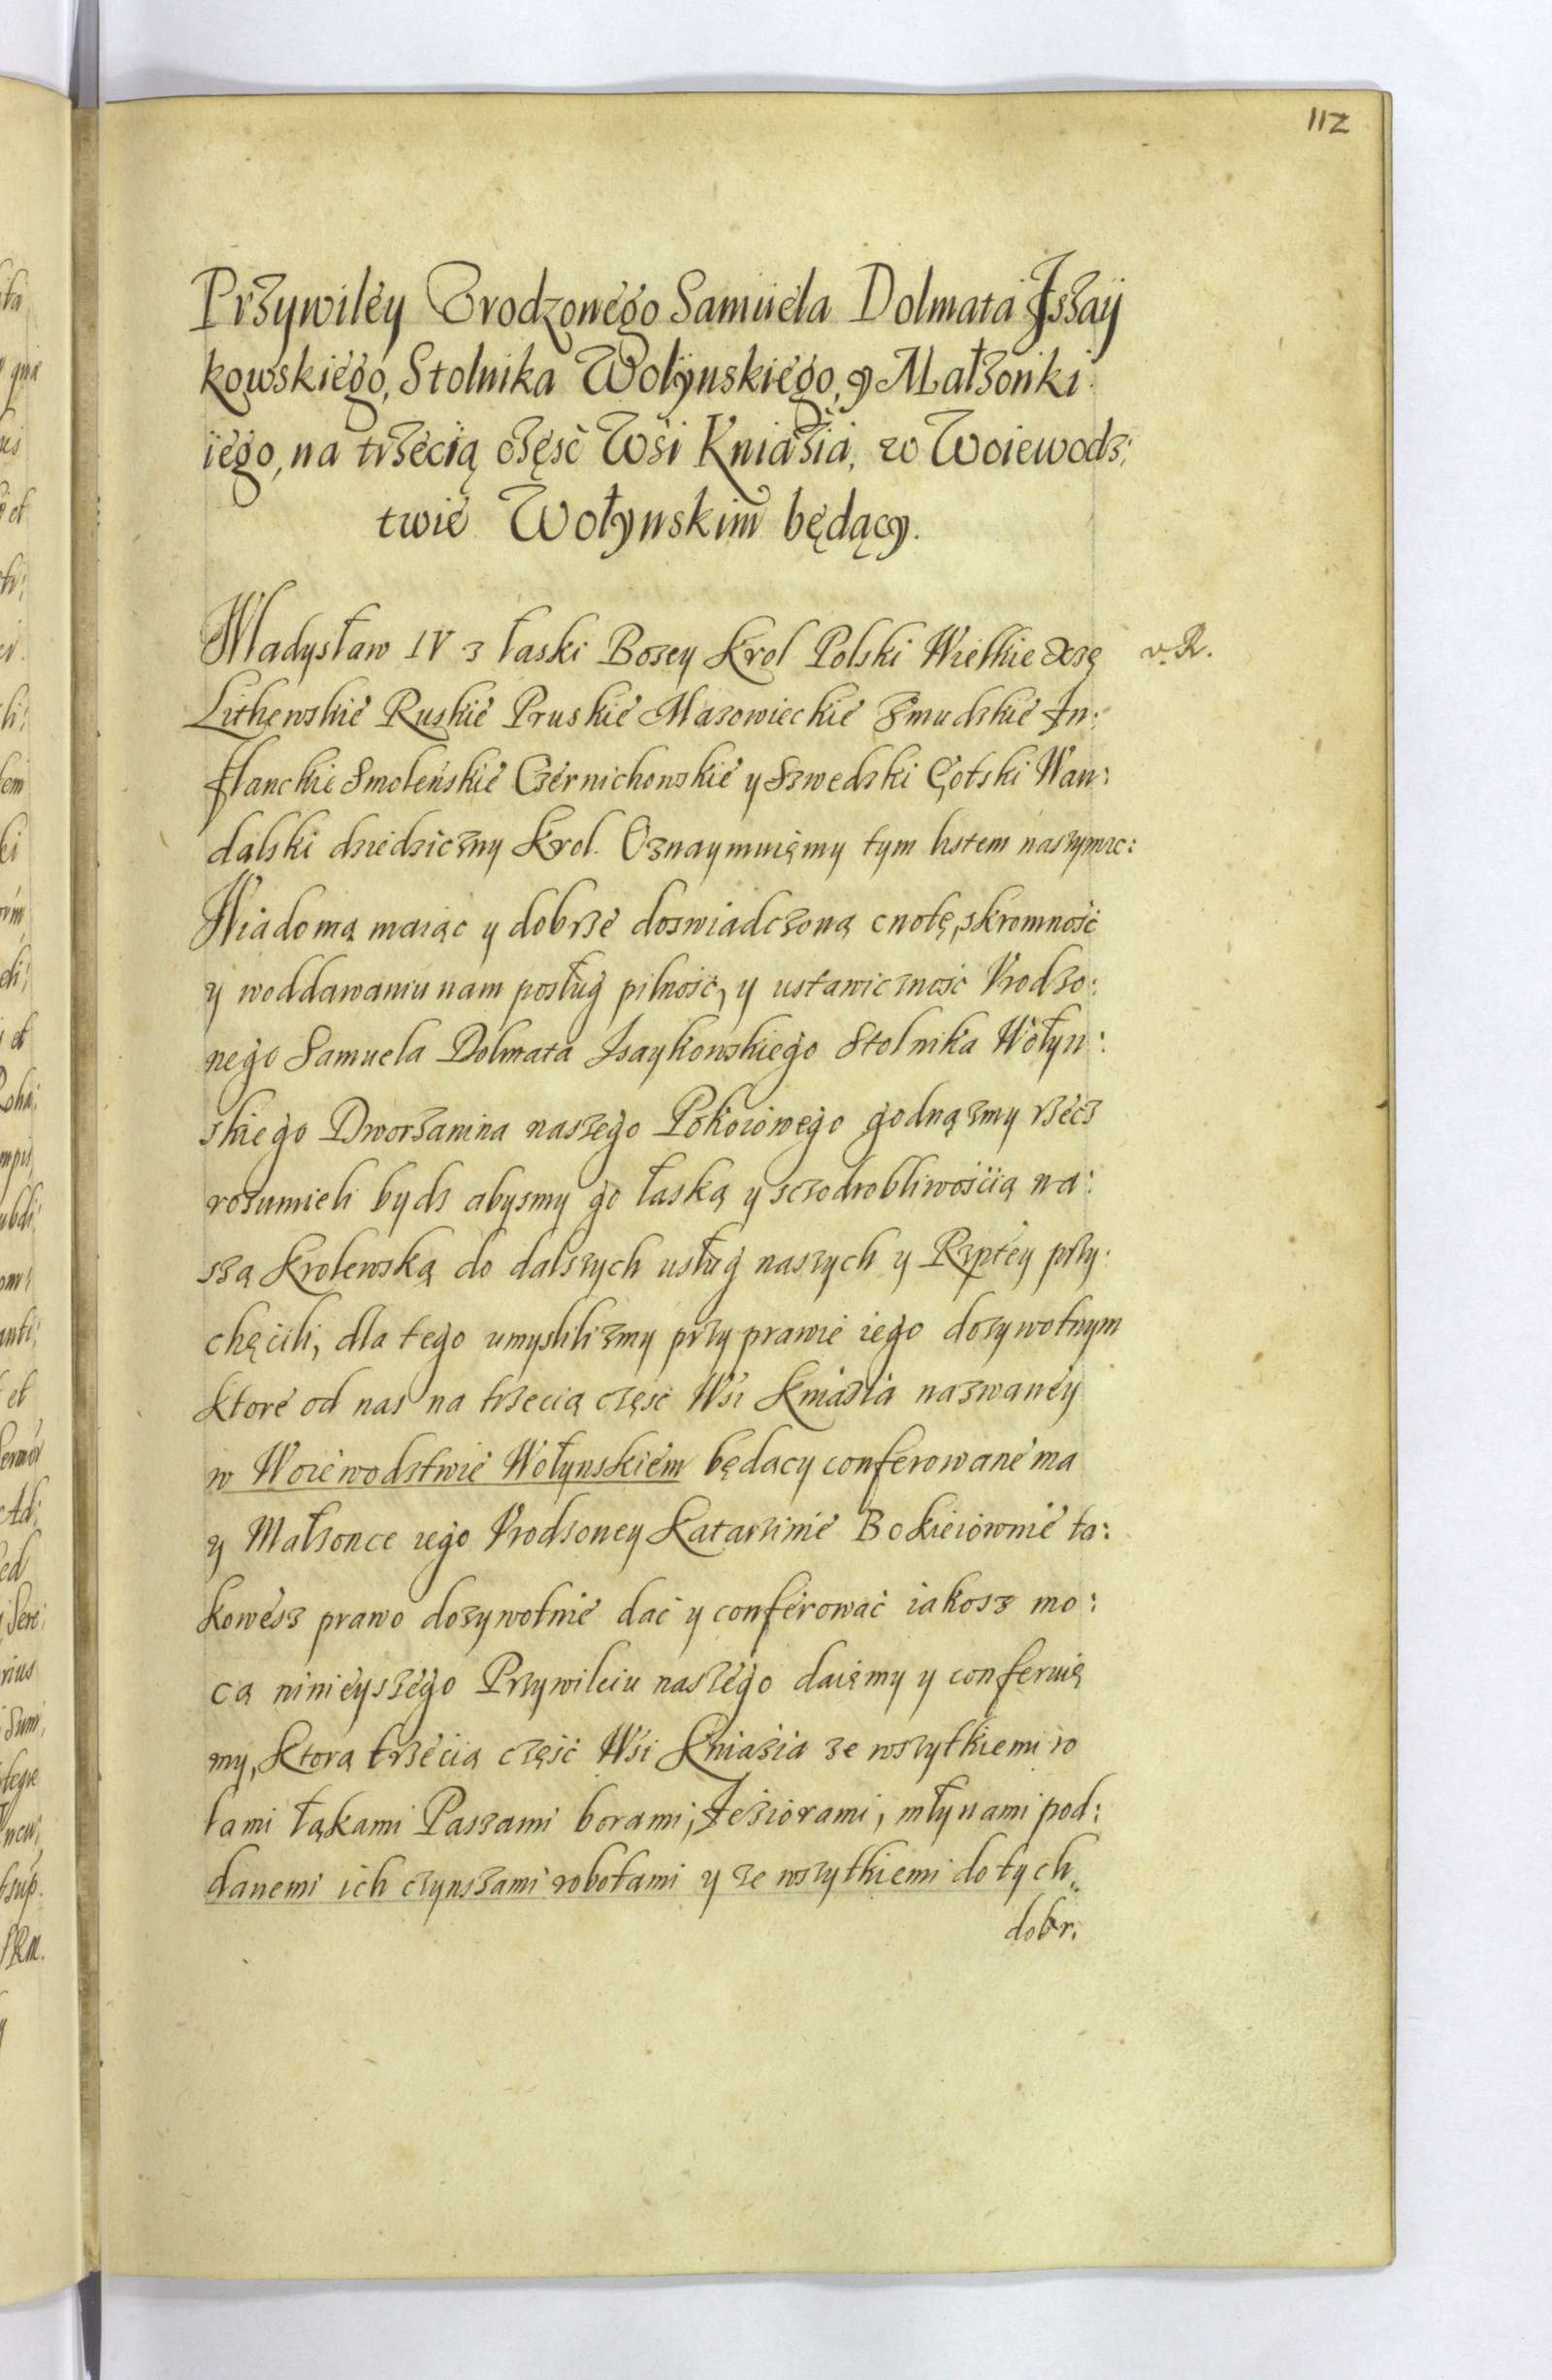 112
Przywiley Vrodzonego Samuela Dolmata Jszaÿ
kowskiego, Stolnika Wołÿnskiego, y Małzonki
iego, na trzecią część Wśi Kniaźia, w Woiewodz:
twie Wołynskim będący.
Władysław IV z łaski Bozey Krol Polski Wielkie Xzę v. R.
Lithewskie Ruskie Pruskie Mazowieckie Zmudzkie Jn:
flanckie Smoleńskie Czernichowskie y Szwedzki Gotski Wan:
dalski dziedziczny Krol. Oznaymuięmy tym listem naszym rc:
Wiadomą maiąc y dobrze doswiadczoną cnotę, skromność
y woddawaniu nam posług pilność, y ustawiczność Vrodzo:
nego Samuela Dolmata Jsaykowskiego Stolnika Wołyn:
skiego Dworzanina naszego Pokoiowego godną zmy rzecz
rozumieli bydz abysmy go łaską y sczodrobliwośćią na:
szą Krolewską do dalszych usług naszych y Rzptey przy:
chęcili, dla tego umyslilizmy przy prawie iego dozywotnym
ktore od nas na trzecią część Wśi Kniaźia nazwaney
w Woiewodztwie Wołynskiem będący conferowane ma
y Małzonce iego Vrodzoney Katarzinie Bokieiownie ta:
kowesz prawo dozywotnie dać y conferować iakosz mo:
cą ninieyszego Przywileiu naszego daięmy y conferuię
my, Ktorą trzecią część Wśi Kniaźia ze wszytkiemi ro
lami łąkami Paszami borami, Jeziorami, młynami pod:
danemi ich czynszami robotami y ze wszytkiemi do tych
dobr.